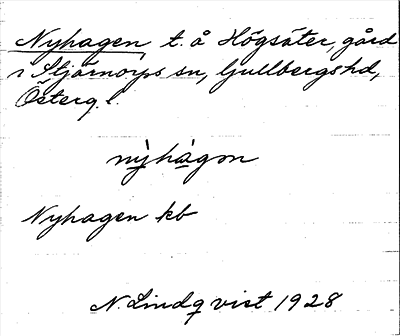 Nyhagen t. å Högsäter, gård
i Stjärnorps sn, Gullbergs hd,
Österg. l.
nỳhágən
Nyhagen kb
N. Lindqvist 1928